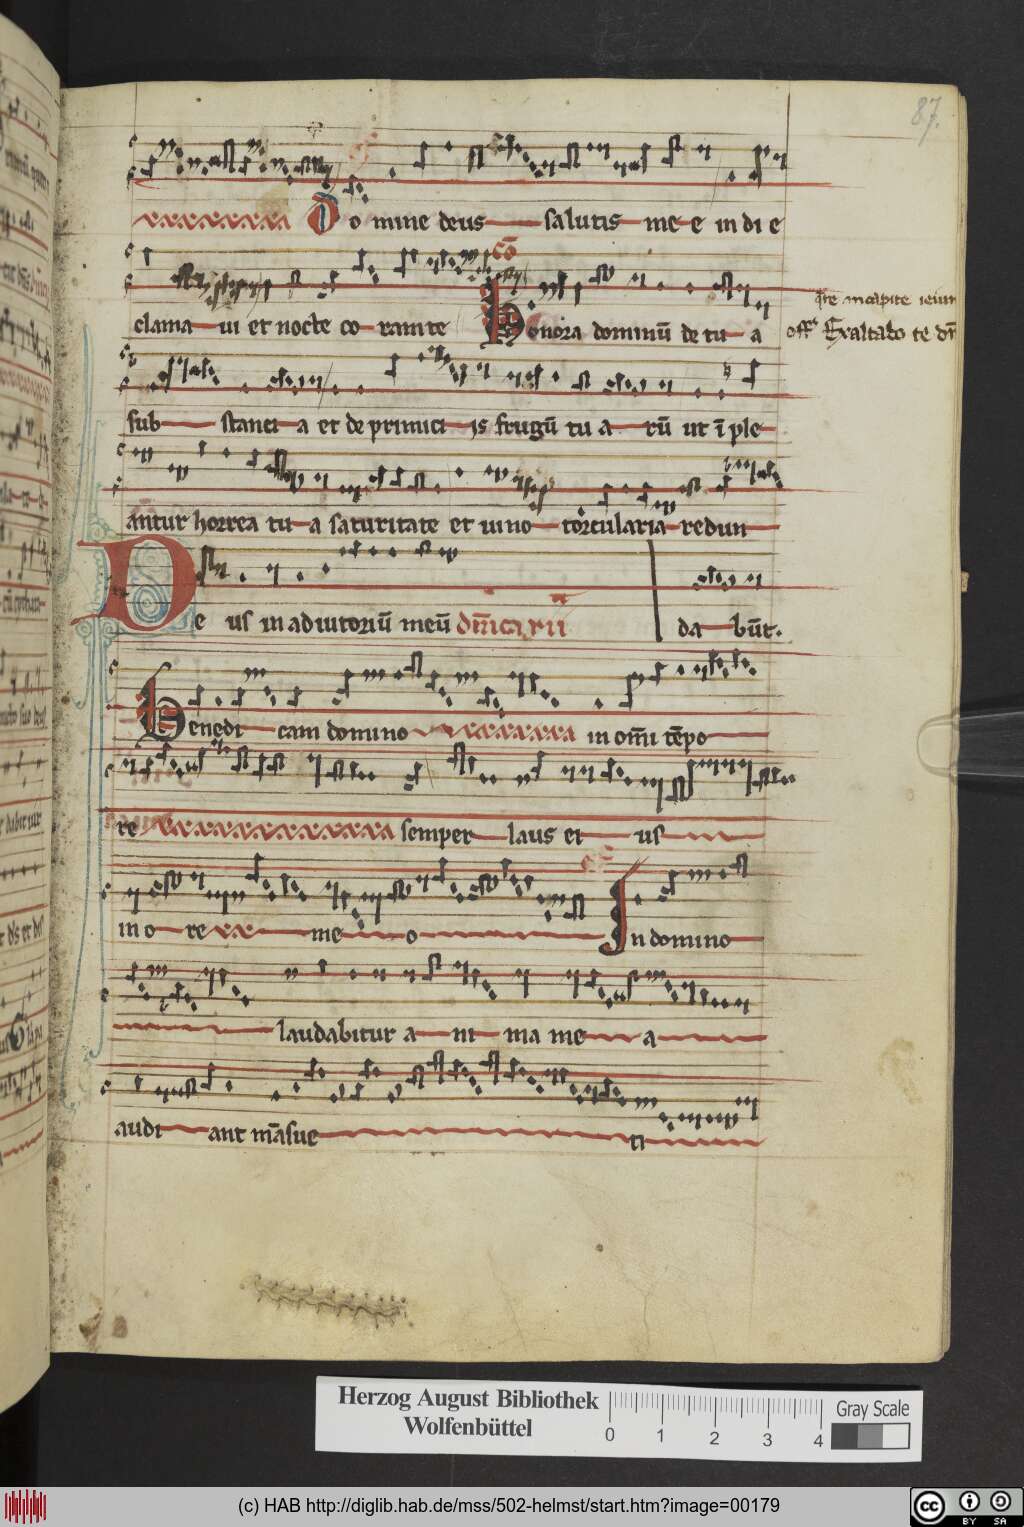 87.
Do mine deus salutis me e in di e
clama ui et nocte co ram te Cō Honora dominū de tu a
qͬe in capite ieiun
offͬ Exaltabo te dn̄
sub stanci a et de primici is frugū tu a rū ut ī ple
antur horrea tu a saturitate et uino torcularia redun
De us in adiutoriū meū dn̄ica xii da būt.
Benedi cam domino in om̄i tēpo
re semper laus ei us
in o re me o In domino
laudabitur a ni ma me a
audi ant māsue ti
Herzog August Bibliothek
Wolfenbüttel
0 1 2 3 4
Gray Scale
(c) HAB http://diglib.hab.de/mss/502-helmst/start.htm?image=00179
cc BY SA